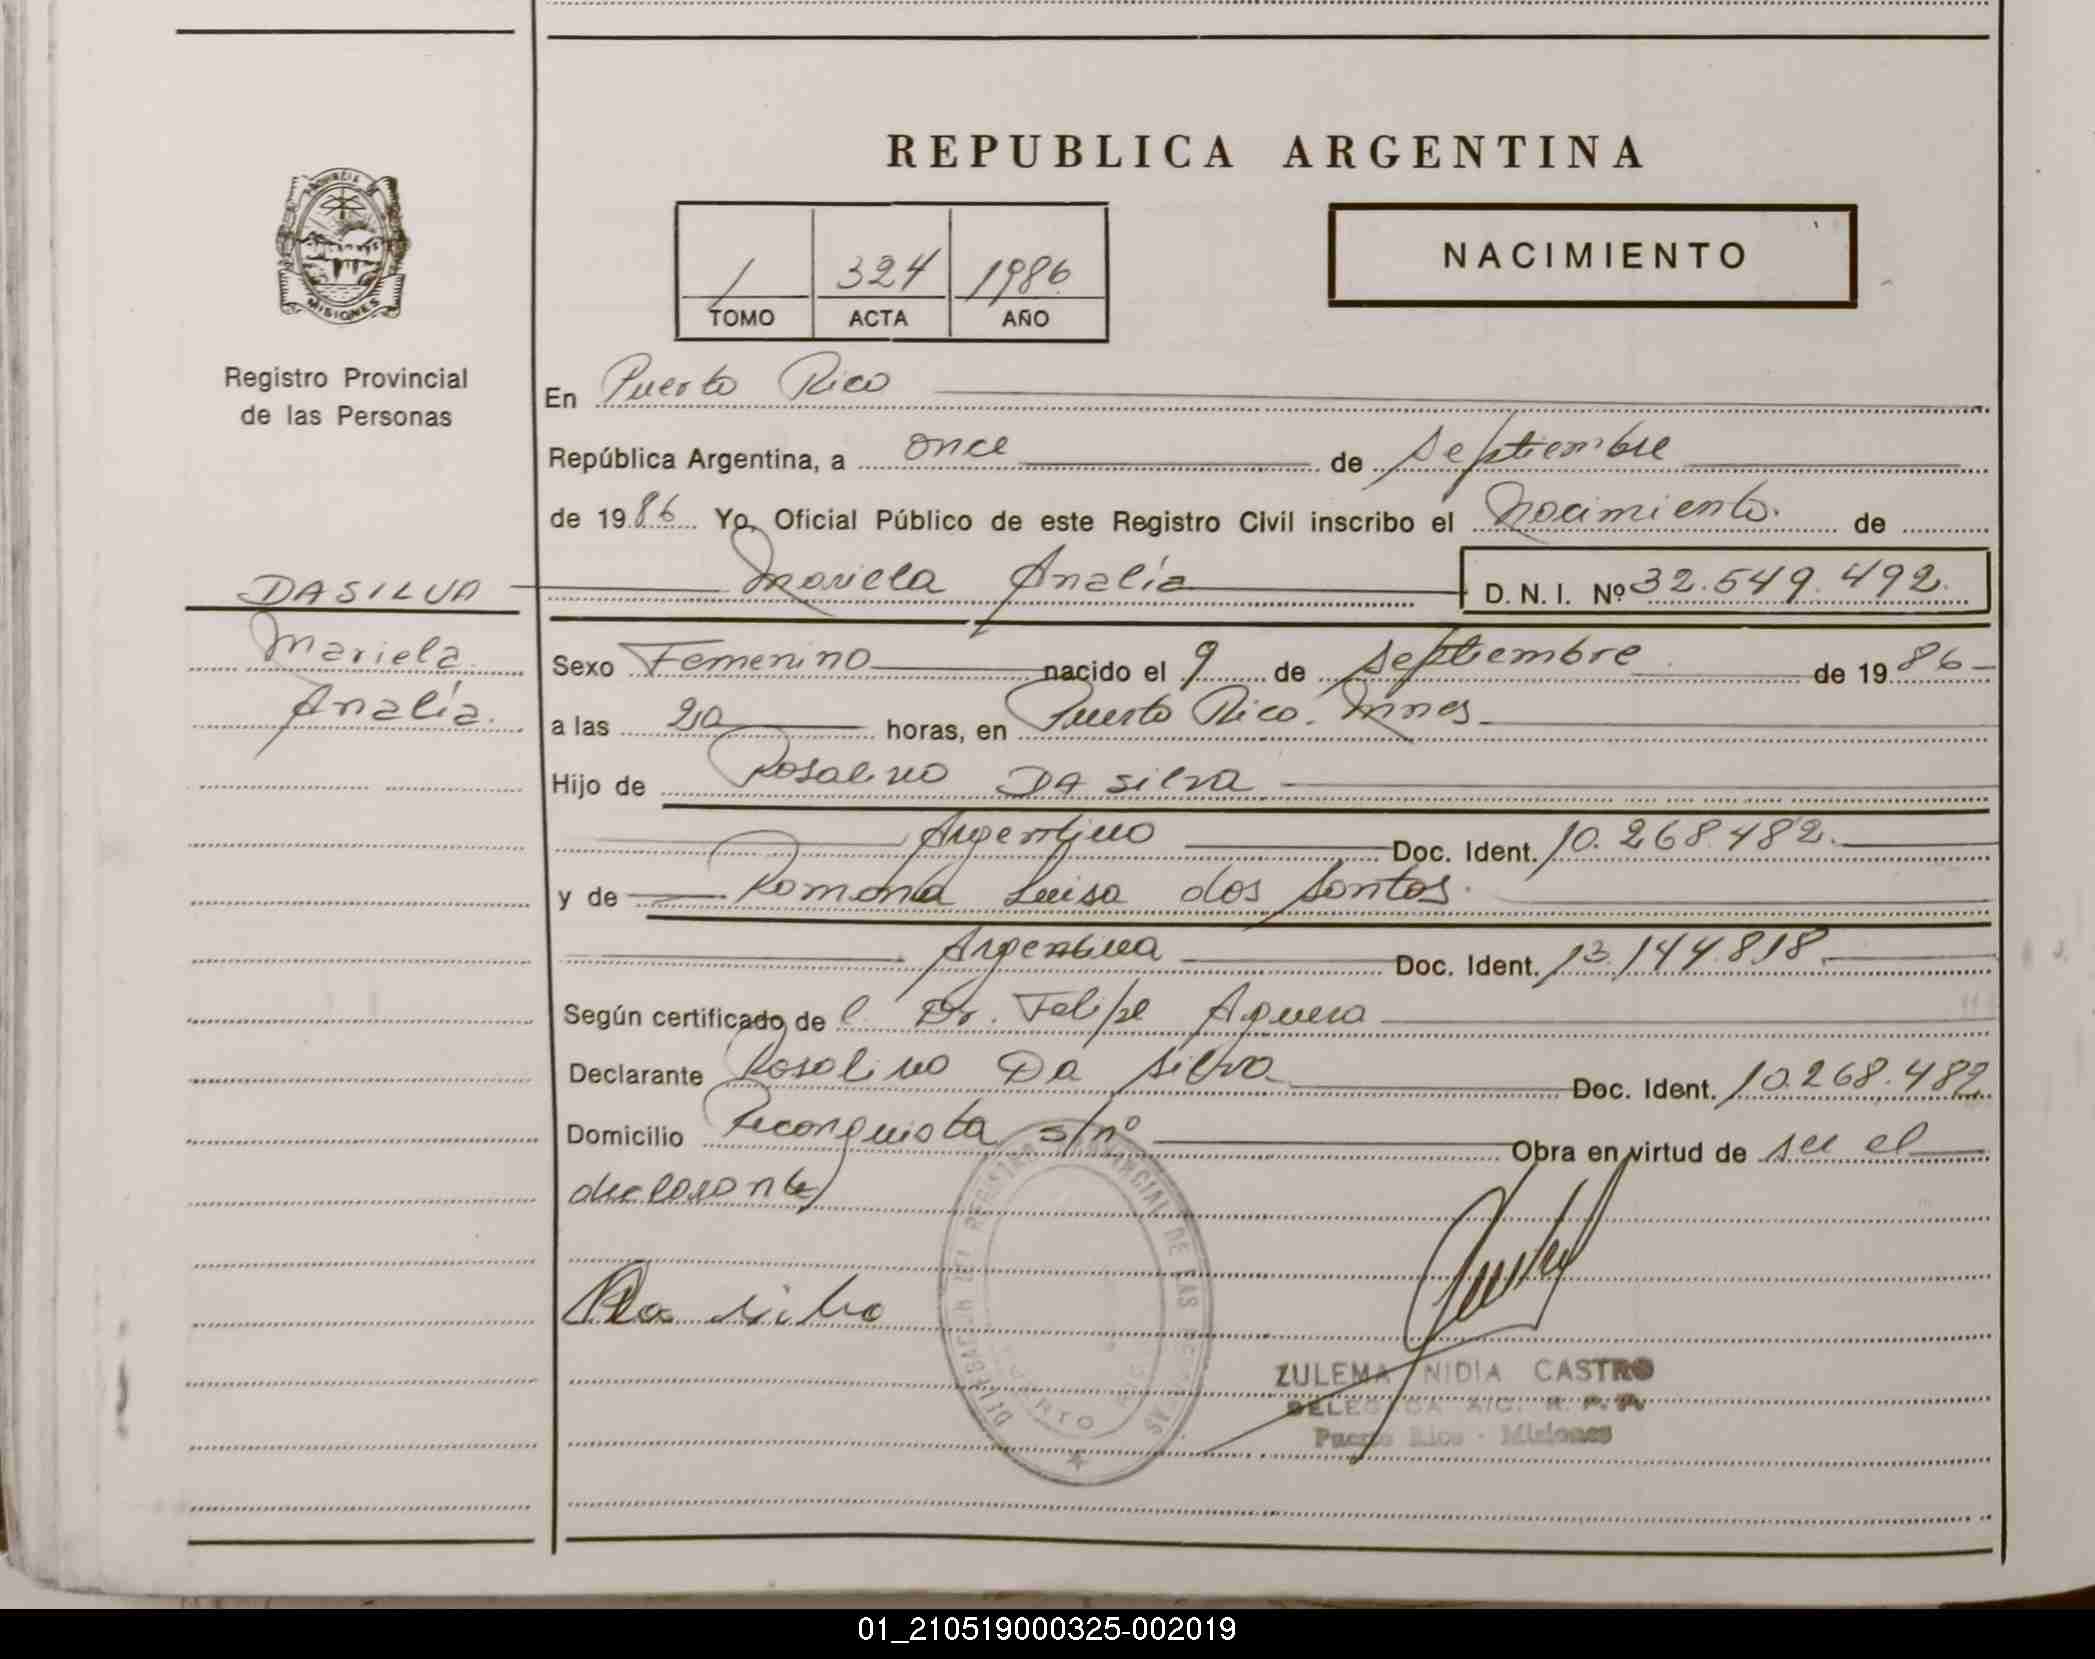 REPUBLICA ARGENTINA
PROVINCIA DE
MISIONES
Registro Provincial
de las Personas
1 324 1986
TOMO ACTA AÑO
NACIMIENTO
En Puerto Rico
República Argentina, a once de septiembre
de 1986 Yo, Oficial Público de este Registro Civil inscribo el Nacimiento. de
DASILVA Mariela Analía D. N. I. Nº 32.549.492.
Mariela
Analía.
Sexo Femenino nacido el 9 de septiembre de 1986
a las 20 horas, en Puerto Rico. Mnes
Hijo de Rosalino DA Silva
Argentino Doc. Ident. 10.268.482.
y de Ramona Luisa dos Santos.
Argentina Doc. Ident. 13.144.818.
Según certificado de l Dr. Felipe Aguera
Declarante Rosalino Da Silva Doc. Ident. 10.268.482
Domicilio Reconquista s/nº Obra en virtud de ser el
declarante
Da silva
DELEGACION DEL REGISTRO PROVINCIAL DE LAS PERSONAS
PUERTO RICO
ZULEMA NIDIA CASTRO
DELEGADA A/C. R. P. P.
Puerto Rico - Misiones
01_210519000325-002019